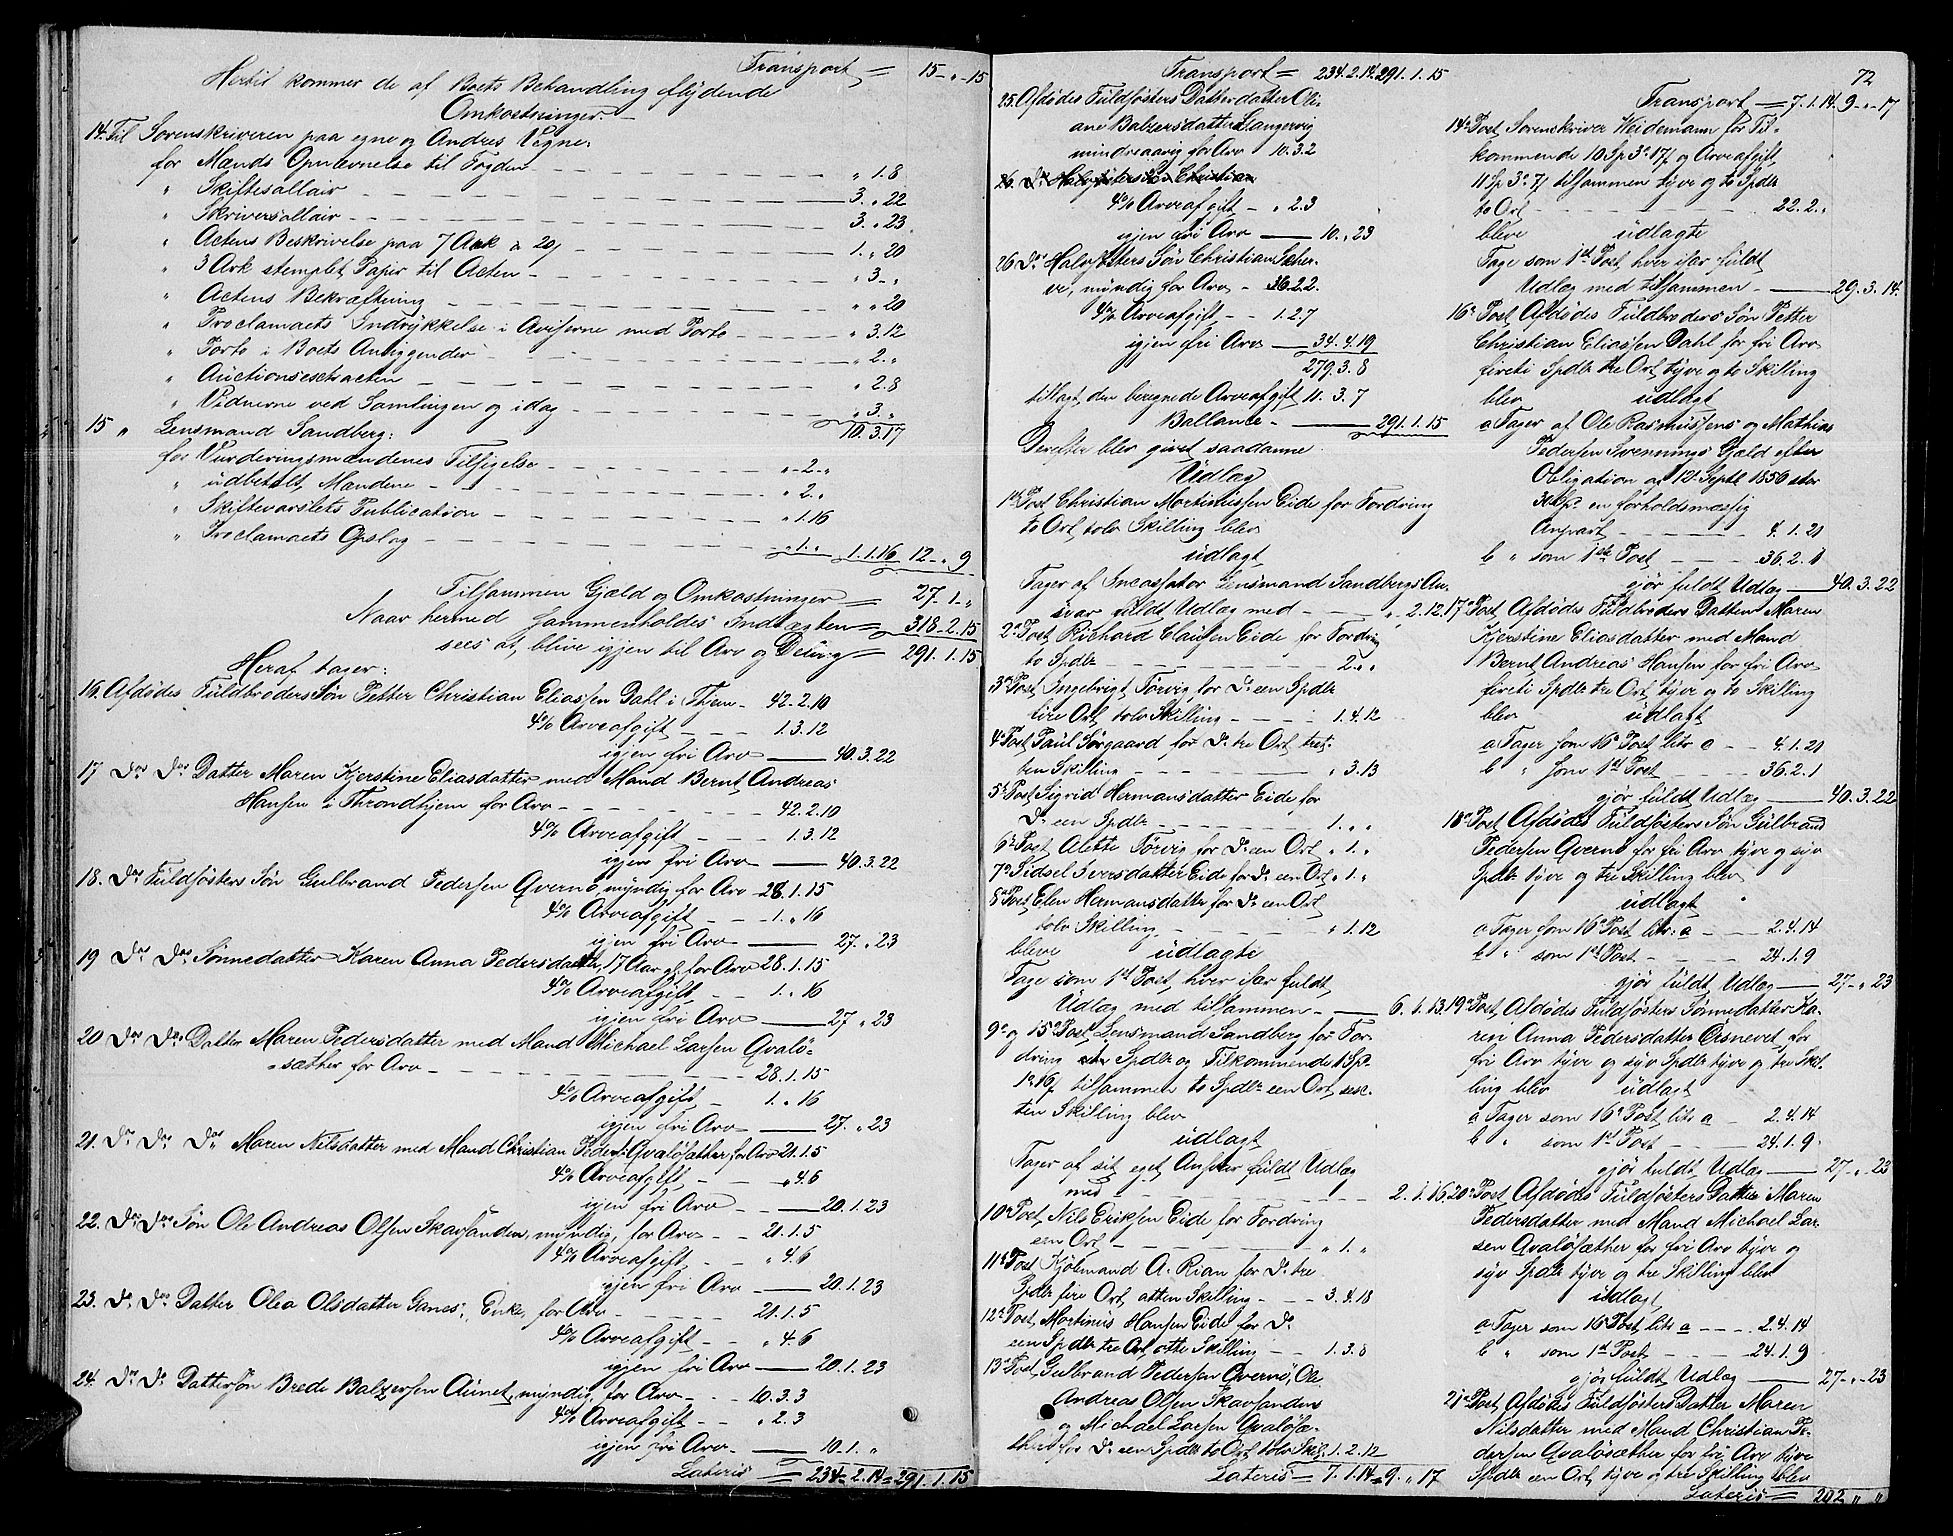 Transport = 15 - " - 15
Hertil kommer de af Boets Behandling flydende
Omkostninger
14. Til Sorenskriveren paa egne og Andres Vegne:
for Mænds Opnævnelse til Fogden - - - " 1.8
" Skiftesallair - - - 3. " 22
" Skriversallair - - - 3. " 23
" Actens Beskrivelse paa 7 Ark a 20 - - - 1. " 20
" 3 Ark stemplet Papir til Acten - - - " 3 - "
" Actens Bekræftning - - - " " 20
" Proclamaets Indrykkelse i Aviserne med Porto - - - " 3.12
" Porto i Boets Anliggender - - - " 2. "
" Auctionsextracten - - - " 2.8
" Vidnerne ved Samlingen og idag - - - " 3. "
10.3.17
15 " Lensmand Sandberg:
for Vurderingsmændenes Tilsigelse - - - " - 2 - "
" udbetalt Mændene - - - " 2. "
" Skiftevarslets Publication - - - " 1.16
" Proclamaets Opslag - - - " 1. " 1.1.16 12 - " 9
Tilsammen Gjæld og Omkostninger = 27 - 1 - "
Naar hermed sammenholdes Indtægten = 318 - 2.15
sees at blive igjen til Arv og Deling = 291.1.15
Heraf tager:
16. Afdødes Fuldbroders Søn Petter Christian Eliassen Dahl i Thjem - 42.2.10
4% Arveafgift - - - 1.3.12
igjen fri Arv 40.3.22
17 Do Do Datter Maren Kjerstine Eliasdatter med Mand Bernt Andreas
Hansen i Throndhjem for Arv - - - 42.2.10
4% Arveafgift - - 1.3.12
igjen fri Arv 40.3.22
18. Do Fuldsøsters Søn Gulbrand Pedersen Qvernø, myndig for Arv 28.1.15
4% Arveafgift - - 1. " 16
igjen fri Arv 27. " 23
19 Do Do Sønnedatter Karen Anna Pedersdatter, 17 Aar gl. for Arv 28.1.15
4% Arveafgift - - 1. " 16
igjen fri Arv 27 " 23
20 Do Do Datter Maren Pedersdatter med Mand Michael Larsen Qvalø-
sæther for Arv - - - 28.1.15
4% Arveafgift - - 1. " 16
igjen fri Arv 27. " 23
21. Do Do Do Maren Nilsdatter med Mand Christian Peders: Qvaløsæther for Arv 21.1.5
4% Arveafgift - - " 4.6
igjen fri Arv - - 20.1.23
22. Do Do Søn Ole Andreas Olsen Skavsanden, myndig, for Arv - - 21.1.5
4% Arveafgift - - " 4.6
igjen fri Arv 20.1.23
23. Do Do Datter Olea Olsdatter Ganes:, Enke, for Arv - - - 21.1.5
4% Arveafgift - - " 4.6
igjen fri Arv 20.1.23
24. Do Do Dattersøn Brede Balzersen Aunet, myndig, for Arv - - 10.3.3
4% Arveafgift - - " 2.3
igjen fri Arv 10.1. "
Lateris = 234 = 2.14 = 291.1.15
Transport = 234.2.14. 291.1.15
25. Afdødes Fuldsøsters Datterdatter Oli-
ane Balzersdatter Langervig
mindreaarig for Arv 10.3.2
26. Do Halvsøsters Søn Christian
4% Arveafgift - " 2.3
igjen fri Arv 10. " 23
26 Do Halvsøsters Søn Christian Scher-
ve, myndig for Arv - 36.2.2.
4% Arveafgift - - 1.2.7
igjen fri Arv 34.4.19
279.3.8
tillagt den beregnede Arveafgift 11.3.7
Ballance - 291.1.15
Derefter blev givet saadanne
Udlæg
1ste Post Christian Mortinussen Eide for Fordring
to Ort, tolv Skilling blev
udlagt
Tager af Incassator Lensmand Sandbergs An-
svar fuldt Udlæg med - - - " 2.12
2n Post Richard Clausen Eide for Fordring
to Spdlr - - - 2. " "
3n Post Ingebrigt Torvig for Do een Spdlr
fire Ort tolv Skilling - - - 1.4.12
4n Post Paul Sørgaard for Do tre Ort, tret-
ten Skilling - - - " 3.13
5n Post Sigrid Hermansdatter Eide for
Do een Spdlr - - - 1. " "
6n Post Alette Torvig for Do een Ort " 1. "
7n Sidsel Iversdatter Eide for Do een Ort " 1. "
8n Post Elen Hermansdatter for Do een Ort
tolv Skilling - - - " 1.12
bleve udlagte
Tage som 1st Post, hver især fuldt
Udlæg med tilsammen - 6.1.13
9n og 15n Post Lensmand Sandberg for For-
dring een Spdlr og Tilkommende 1 Sp
1.16 tilsammen to Spdlr een Ort sex-
ten Skilling blev
udlagt
Tager af sit eget Ansvar fuldt Udlæg
med - - - 2.1.16
10n Post Nils Eriksen Eide for Fordring
een Ort - - - " 1. "
11te Post Kjøbmand A. Rian for Do tre
Spdlr fire Ort, atten Skilling - - - 3.4.18
12te Post Mortinus Hansen Eide for Do
een Spdlr tre Ort otte Skilling - - 1.3.8
13n Post Gulbrand Pedersen Qvernø, Ole
Andreas Olsen Skavsanden
og Michael Larsen Qvaløsæ-
ther for Do een Spdlr to Ort tolv Skil. 1.2.12
Lateris = 7.1.14 = 9. " 17
72
Transport = 7.1.14. 9 - " - 17
14n Post Sorenskriver Weidemann for Til-
kommende 10 Sp 3 17 og Arveafgift
11 Sp 3 7 tilsammen tyve og to Spdlr
to Ort - - - 22.2. "
bleve udlagte
Tage som 1st Post, hver især fuldt
Udlæg med tilsammen - 29.3.14.
16n Post Afdødes Fuldbroders Søn Petter
Christian Eliassen Dahl for fri Arv
fireti Spdlr tre Ort, tyve og to Skilling
blev udlagt
a Tager af Ole Rasmussens og Mathias
Pedersen Svennings Gjæld efter
Obligation af 12. Septb 1856 stor
30 Sp. en forholdsmæssig
Anpart - - - 4.1.21
b " som 1ste Post - - - 36.2.1
gjør fuldt Udlæg 40.3.22
17n Post Afdødes Fuldbroders Datter Maren
Kjerstine Eliasdatter med Mand
Bernt Andreas Hansen for fri Arv
fireti Spdlr tre Ort, tyve og to Skilling
blev udlagt
a Tager som 16n Post litr a - - 4.1.21
b " som 1st Post - - - 36.2.1
gjør fuldt Udlæg 40.3.22
18n Post Afdødes Fuldsøsters Søn Gulbrand
Pedersen Qvernø for fri Arv tyve og syv
Spdlr tyve og tre Skilling blev
udlagt
a Tager som 16n Post litr: a - - 2.4.14
b " som 1st Post - - - 24.1.9
gjør fuldt Udlæg 27 - " 23
19n Post Afdødes Fuldsøsters Sønnedatter Ka-
ren Anna Pedersdatter Ørsnevet, for
fri Arv tyve og syv Spdlr tyve og tre Skil-
ling blev udlagt
a Tager som 16n Post litr a - 2.4.14
b " som 1st Post - - - 24.1.9
gjør fuldt Udlæg 27 - " - 23
20n Post Afdødes Fuldsøsters Datter Maren
Pedersdatter med Mand Michael Lar-
sen Qvaløsæther for fri Arv tyve og
syv Spdlr tyve og tre Skilling blev
udlagt
a Tager som 16 Post litr a - - - 2.4.14
b " som 1st Post - - - 24.1.9
gjør fuldt Udlæg 27 - " - 23
21n Post Afdødes Fuldsøsters Datter Maren
Nilsdatter med Mand Christian Pe-
dersen Qvaløsæther for fri Arv tyve
Spdlr een Ort, tyve og tre Skilling blev
Lateris = 202 " "